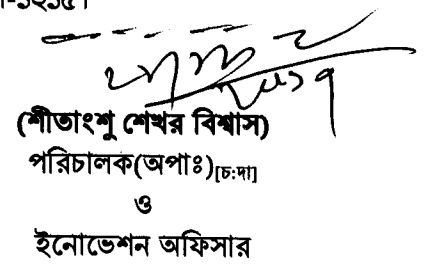 (শীতাংশু শেখর বিশ্বাস)
পরিচালক(অপাঃ)[চ:দা]
ও
ইনোভেশন অফিসার